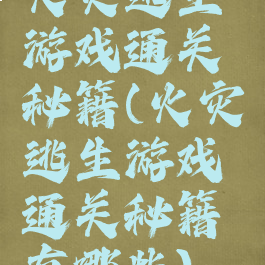 火灾逃生
游戏通关
秘籍(火灾
逃生游戏
通关秘籍
有哪些)